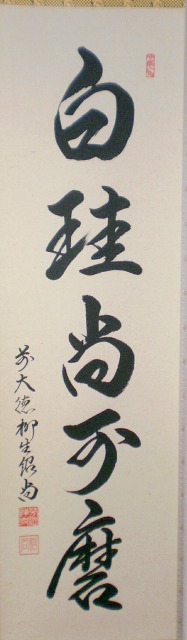 白珪尚可磨
前大徳柳生紹尚